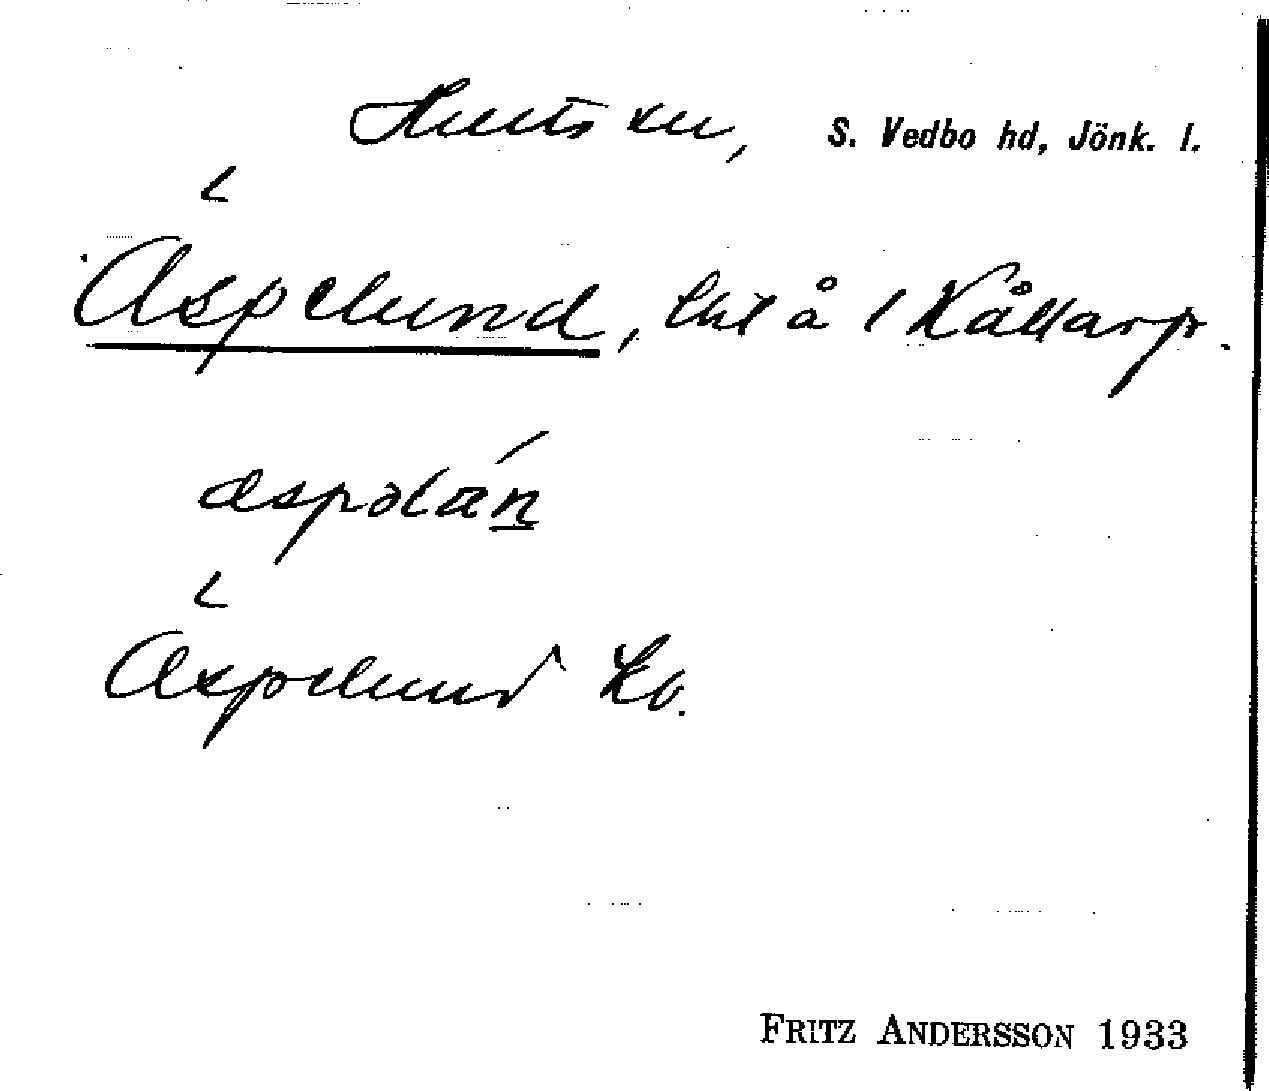 Hults sn, S. Vedbo hd, Jönk. l.
Äspelund, lht å 1 Kållarp.
äspəlán
Äspelund Ko.
FRITZ ANDERSSON 1933